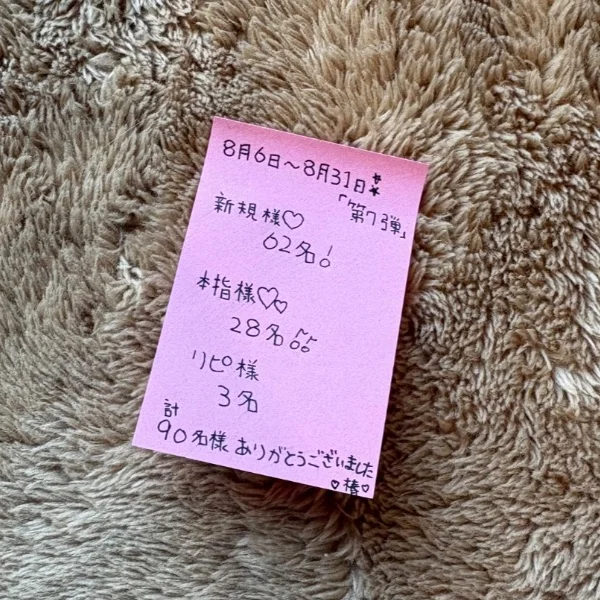 8月6日〜8月31日
「第7弾」
新規様♡
62名!
本指様♡♡
28名♫
リピ様
3名
計
90名様 ありがとうございました
♡椿♡